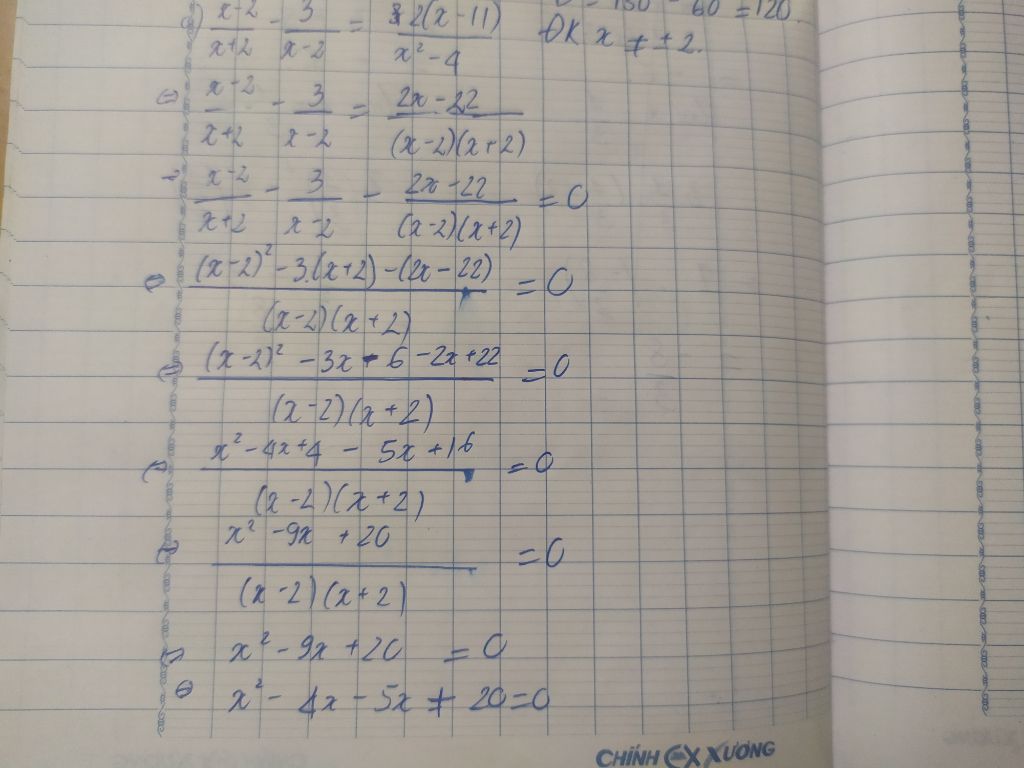 ) (x-2)/(x+2) - 3/(x-2) = 2(x-11)/(x²-4)
= 180 - 60 = 120.
ĐK x ≠ ±2.
⇔ (x-2)/(x+2) - 3/(x-2) = (2x-22)/((x-2)(x+2))
⇔ (x-2)/(x+2) - 3/(x-2) - (2x-22)/((x-2)(x+2)) = 0
⇔ ((x-2)² - 3.(x+2) - (2x-22))/((x-2)(x+2)) = 0
⇔ ((x-2)² - 3x - 6 - 2x + 22)/((x-2)(x+2)) = 0
⇔ (x² - 4x + 4 - 5x + 16)/((x-2)(x+2)) = 0
⇔ (x² - 9x + 20)/((x-2)(x+2)) = 0
⇔ x² - 9x + 20 = 0
⇔ x² - 4x - 5x + 20 = 0
CHÍNH XƯƠNG